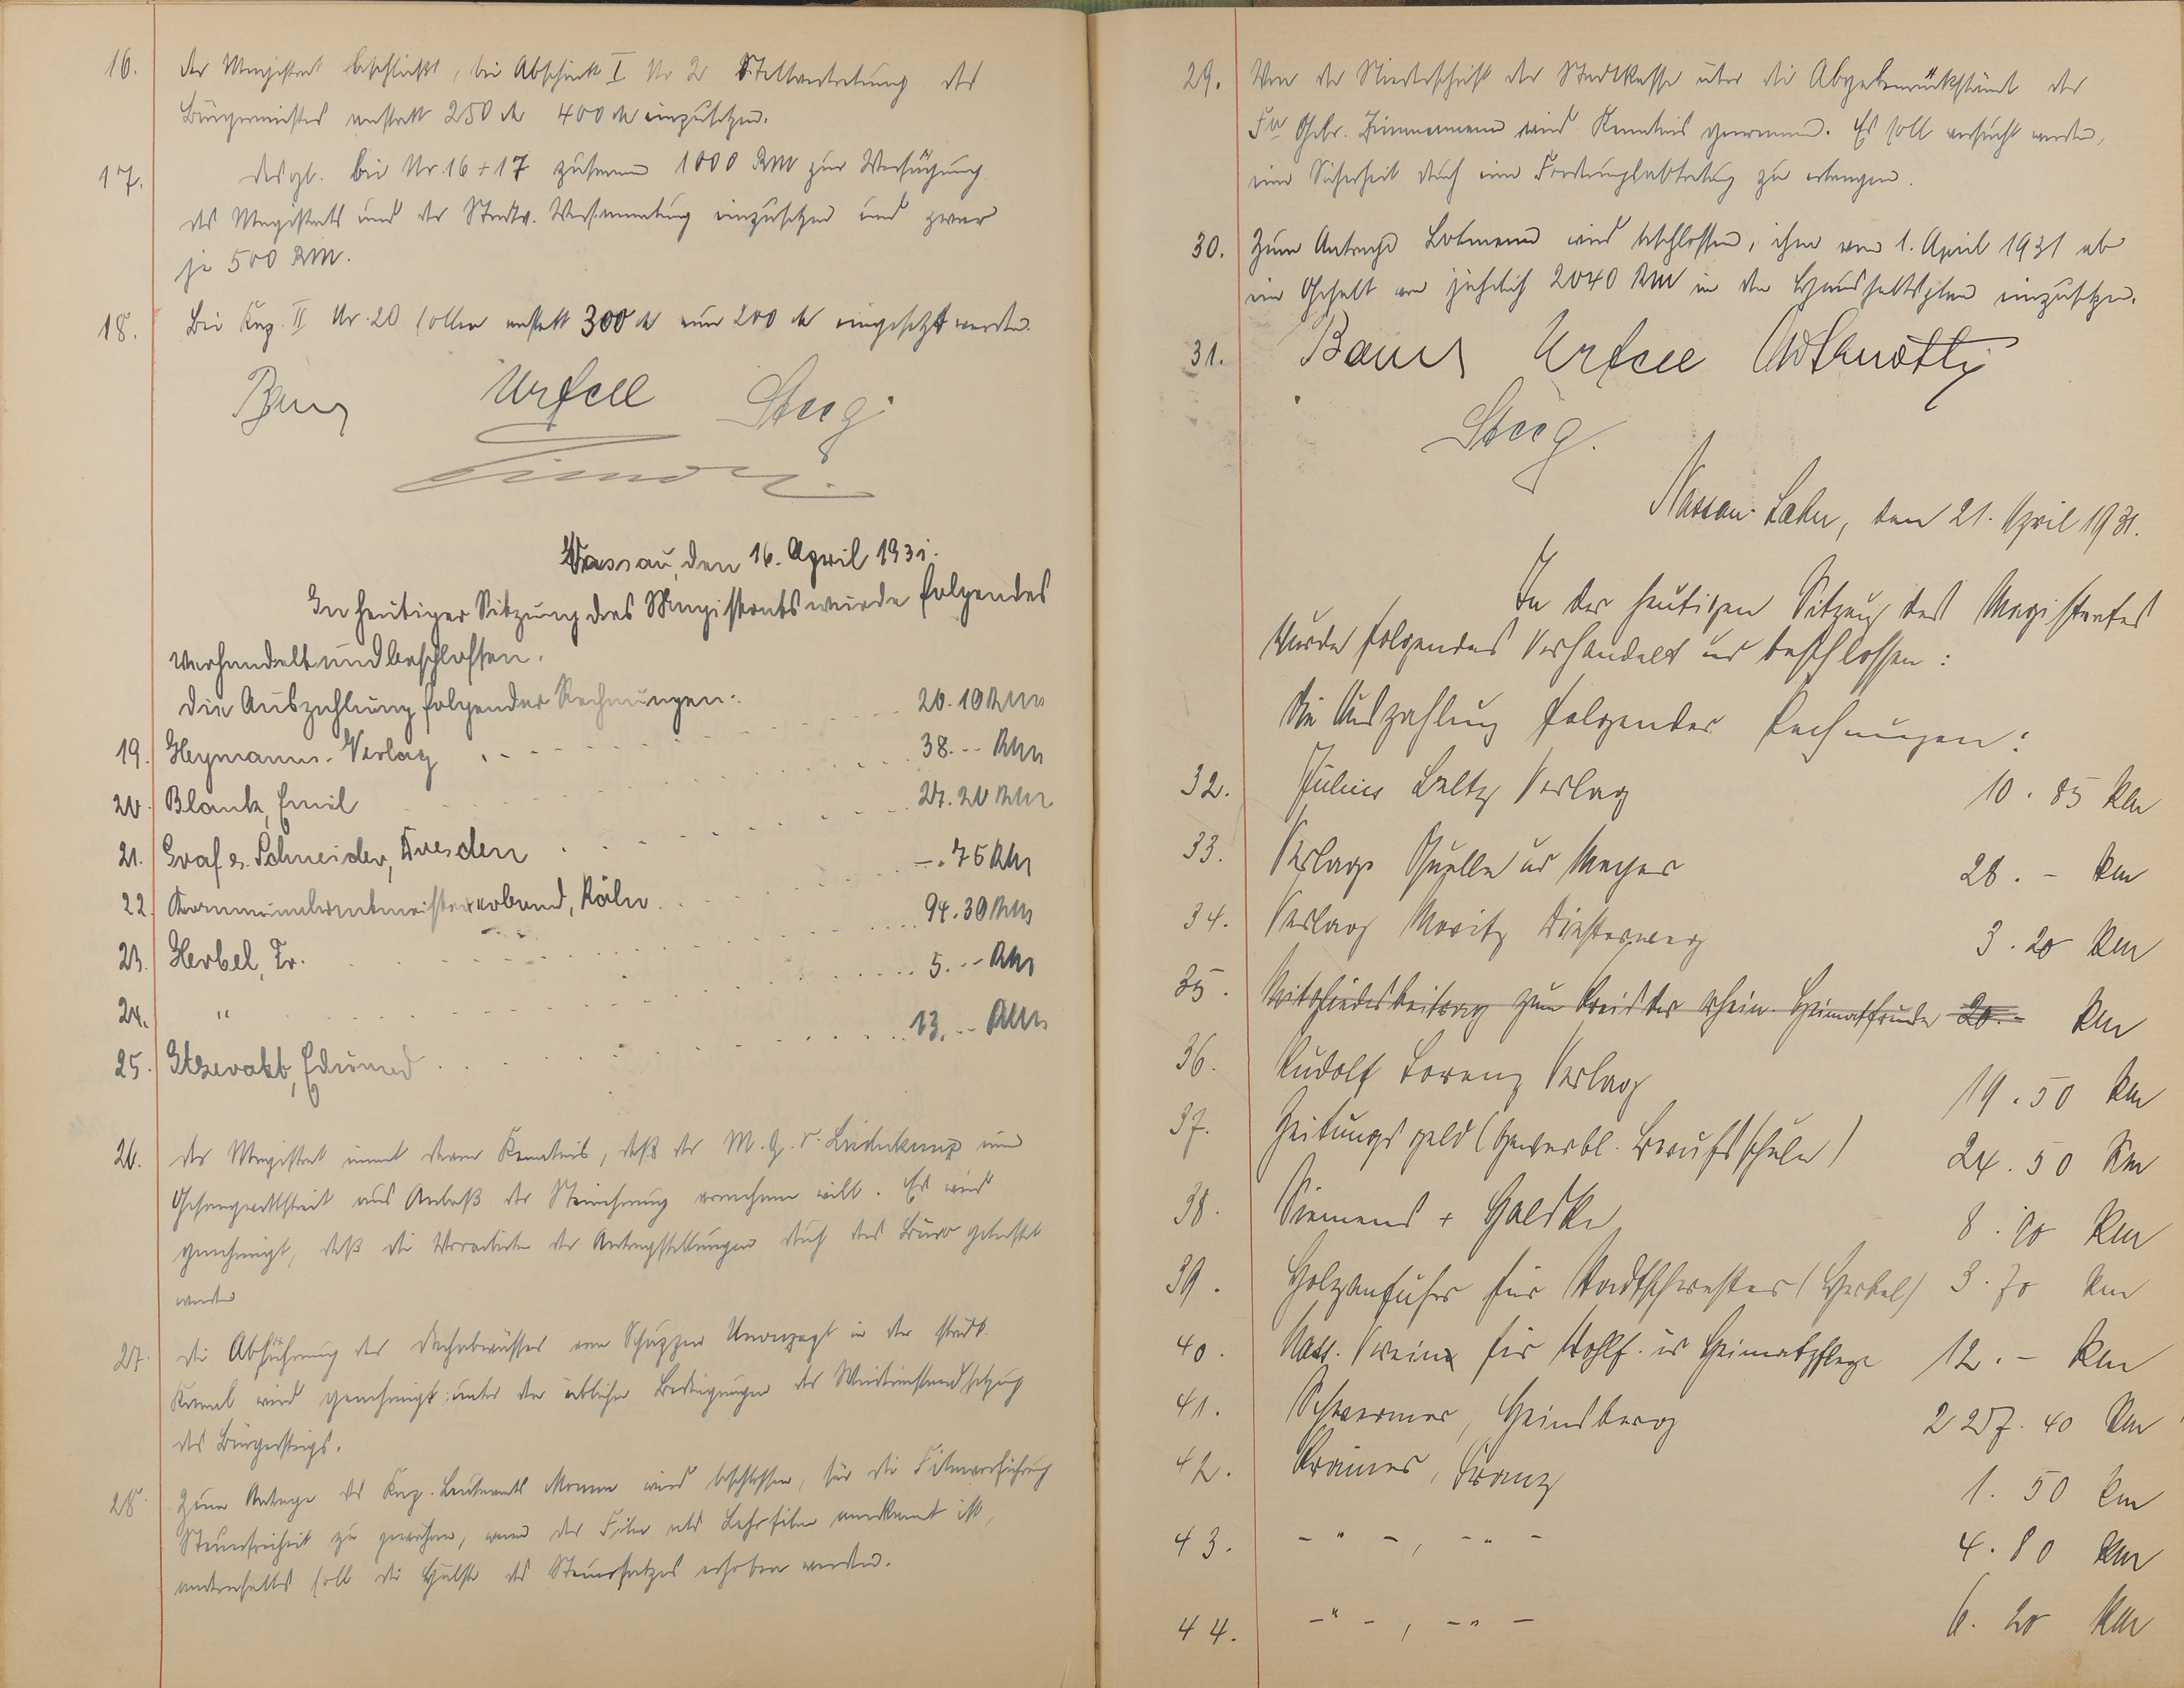 16. Der Magistrat beschließt, bei Abschnitt I Nr 2 Stellvertretung des
Bürgermeisters anstatt 250 M 400 M einzusetzen.
17. desgl. bei Nr. 16 + 17 zusammen 1000 RM zur Verfügung
des Magistrats und der Stadtv. Versammlung einzusetzen und zwar
je 500 RM.
18. Bei Kap. II Nr. 20 sollen anstatt 300 M nur 200 M eingesetzt werden.
Urfell Steeg
Nassau, den 16. April 1931.
In heutiger Sitzung des Magistrats wurde folgendes
verhandelt und beschlossen.
Die Auszahlung folgender Rechnungen:
19. Heymanns-Verlag 20.10 RM
20. Blank, Emil 38.-- RM
21. Graf u. Schneider, Dresden 27.20 RM
22. Kommunalrentmeisterverband, Köln -.75 RM
23. Herbel, Fr. 94.30 RM
24. " 5.-- RM
25. Edmund 13.-- RM
26. Der Magistrat nimmt davon Kenntnis, daß der M. G. V. Liederkranz einen
Gesangwettstreit aus Anlaß der vornehmen will. Es wird
genehmigt, daß die Vorarbeiten der Antragstellungen durch das Büro geleistet
werden
27. Die Abführung des Dachabwässer vom Schuppen Unverzagt in den städt.
Kanal wird genehmigt unter den üblichen Bedingungen der Wiederinstandsetzung
des Bürgersteigs.
28. Zum Antrage des wird beschlossen, für die Filmvorführung
Steuerfreiheit zu gewähren, wenn der Film als Lehrfilm anerkannt ist,
andernfalls soll die Hälfte des Steuersatzes erhoben werden.
29. Von der Niederschrift der Stadtkasse über die Abgabenrückstände der
Fa Gebr. Zimmermann wird Kenntnis genommen. Es soll versucht werden,
eine Sicherheit durch eine Forderungsabtretung zu erlangen.
30. Zum Antrage wird beschlossen, ihm vom 1. April 1931 ab
ein Gehalt von jährlich 2040 RM in den Haushaltsplan einzusetzen.
31. Urfell
Steeg.
Nassau-Lahn, den 21. April 1931.
In der heutigen Sitzung des Magistrates
wurde folgendes verhandelt und beschlossen:
Die Auszahlung folgender Rechnungen:
32. Julius Beltz Verlag 10.85 RM
33. Verlage Quelle u Meyer 28.- RM
34. Verlag Moritz Diesterweg 3.20 RM
35. Mitgliedsbeitrag zum Kreis der rhein. Heimatfreunde 20.- RM
36. Rudolf Lorenz Verlag 19.50 RM
37. Zeitungsgeld (Gewerbl. Berufsschule) 24.50 RM
38. Siemens + Halske 8.90 RM
39. Holzanfuhr für Stadtschwester (Herbel) 3.70 RM
40. Nass. Verein für Wohlf. u Heimatpflege 12.- RM
41. Heinsberg 2 257.40 RM
42. Franz 1.50 RM
43. - " -, - " - 4.80 RM
44. - " -, - " - 6.20 RM